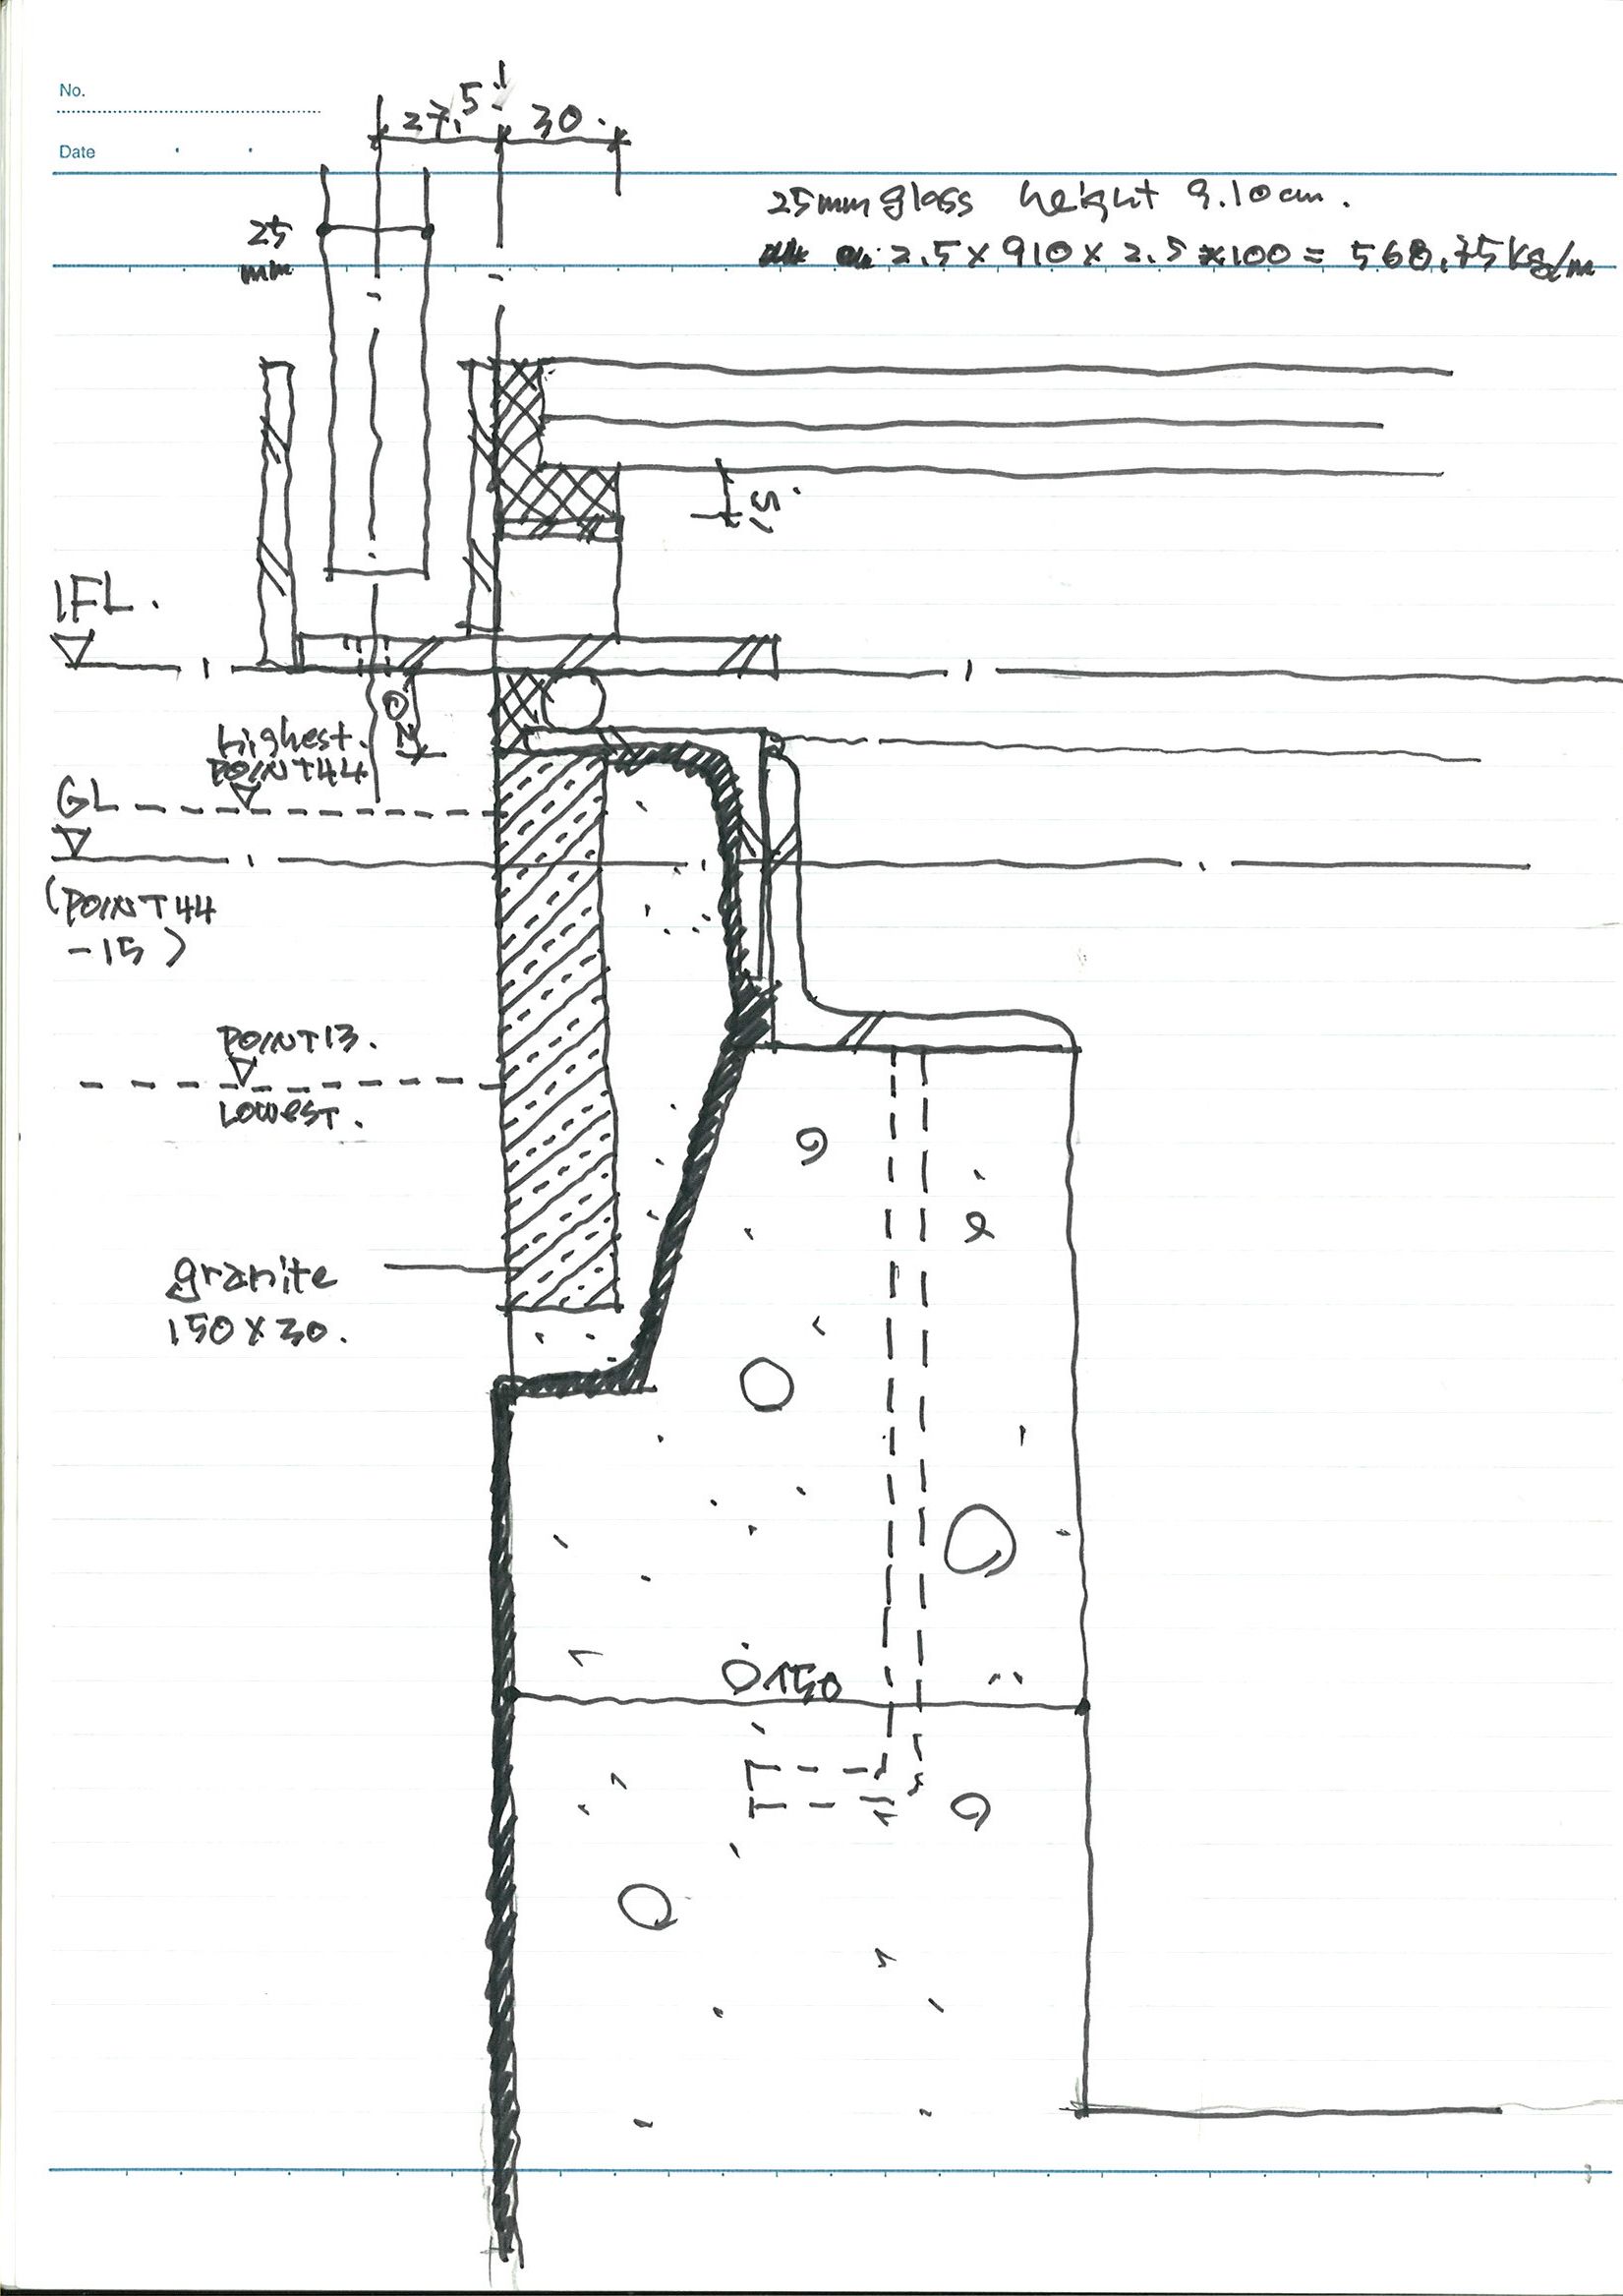 No.
Date
27.5 30.
25mm glass height 9.10cm.
2.5 × 910 × 2.5 × 100 = 568.75 Kg/m
25
mm
15.
1FL.
20
Highest.
POINT44
GL
(POINT44
-15)
POINT13.
LOWEST.
granite
150×30.
150